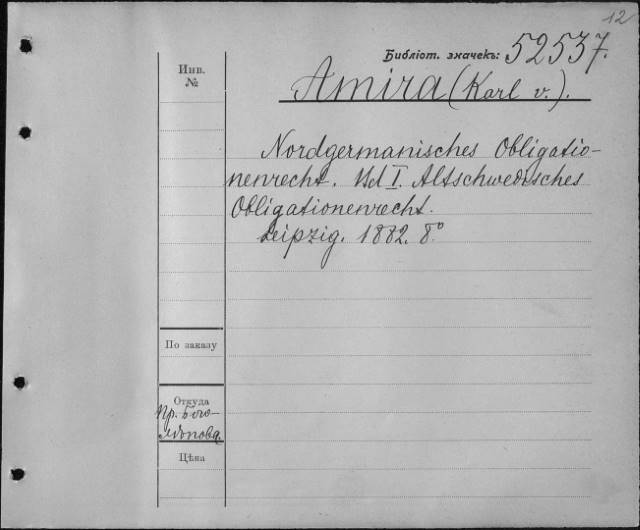 12
Библіот. значекъ: 52537.
Инв.
№
Amira (Karl v.).
Nordgermanisches Obligatio-
nenrecht. Bd I. Altschwedisches
Obligationenrecht.
Leipzig. 1882. 8°
По заказу
Откуда
Пр. Бого-
лѣпова
Цѣна